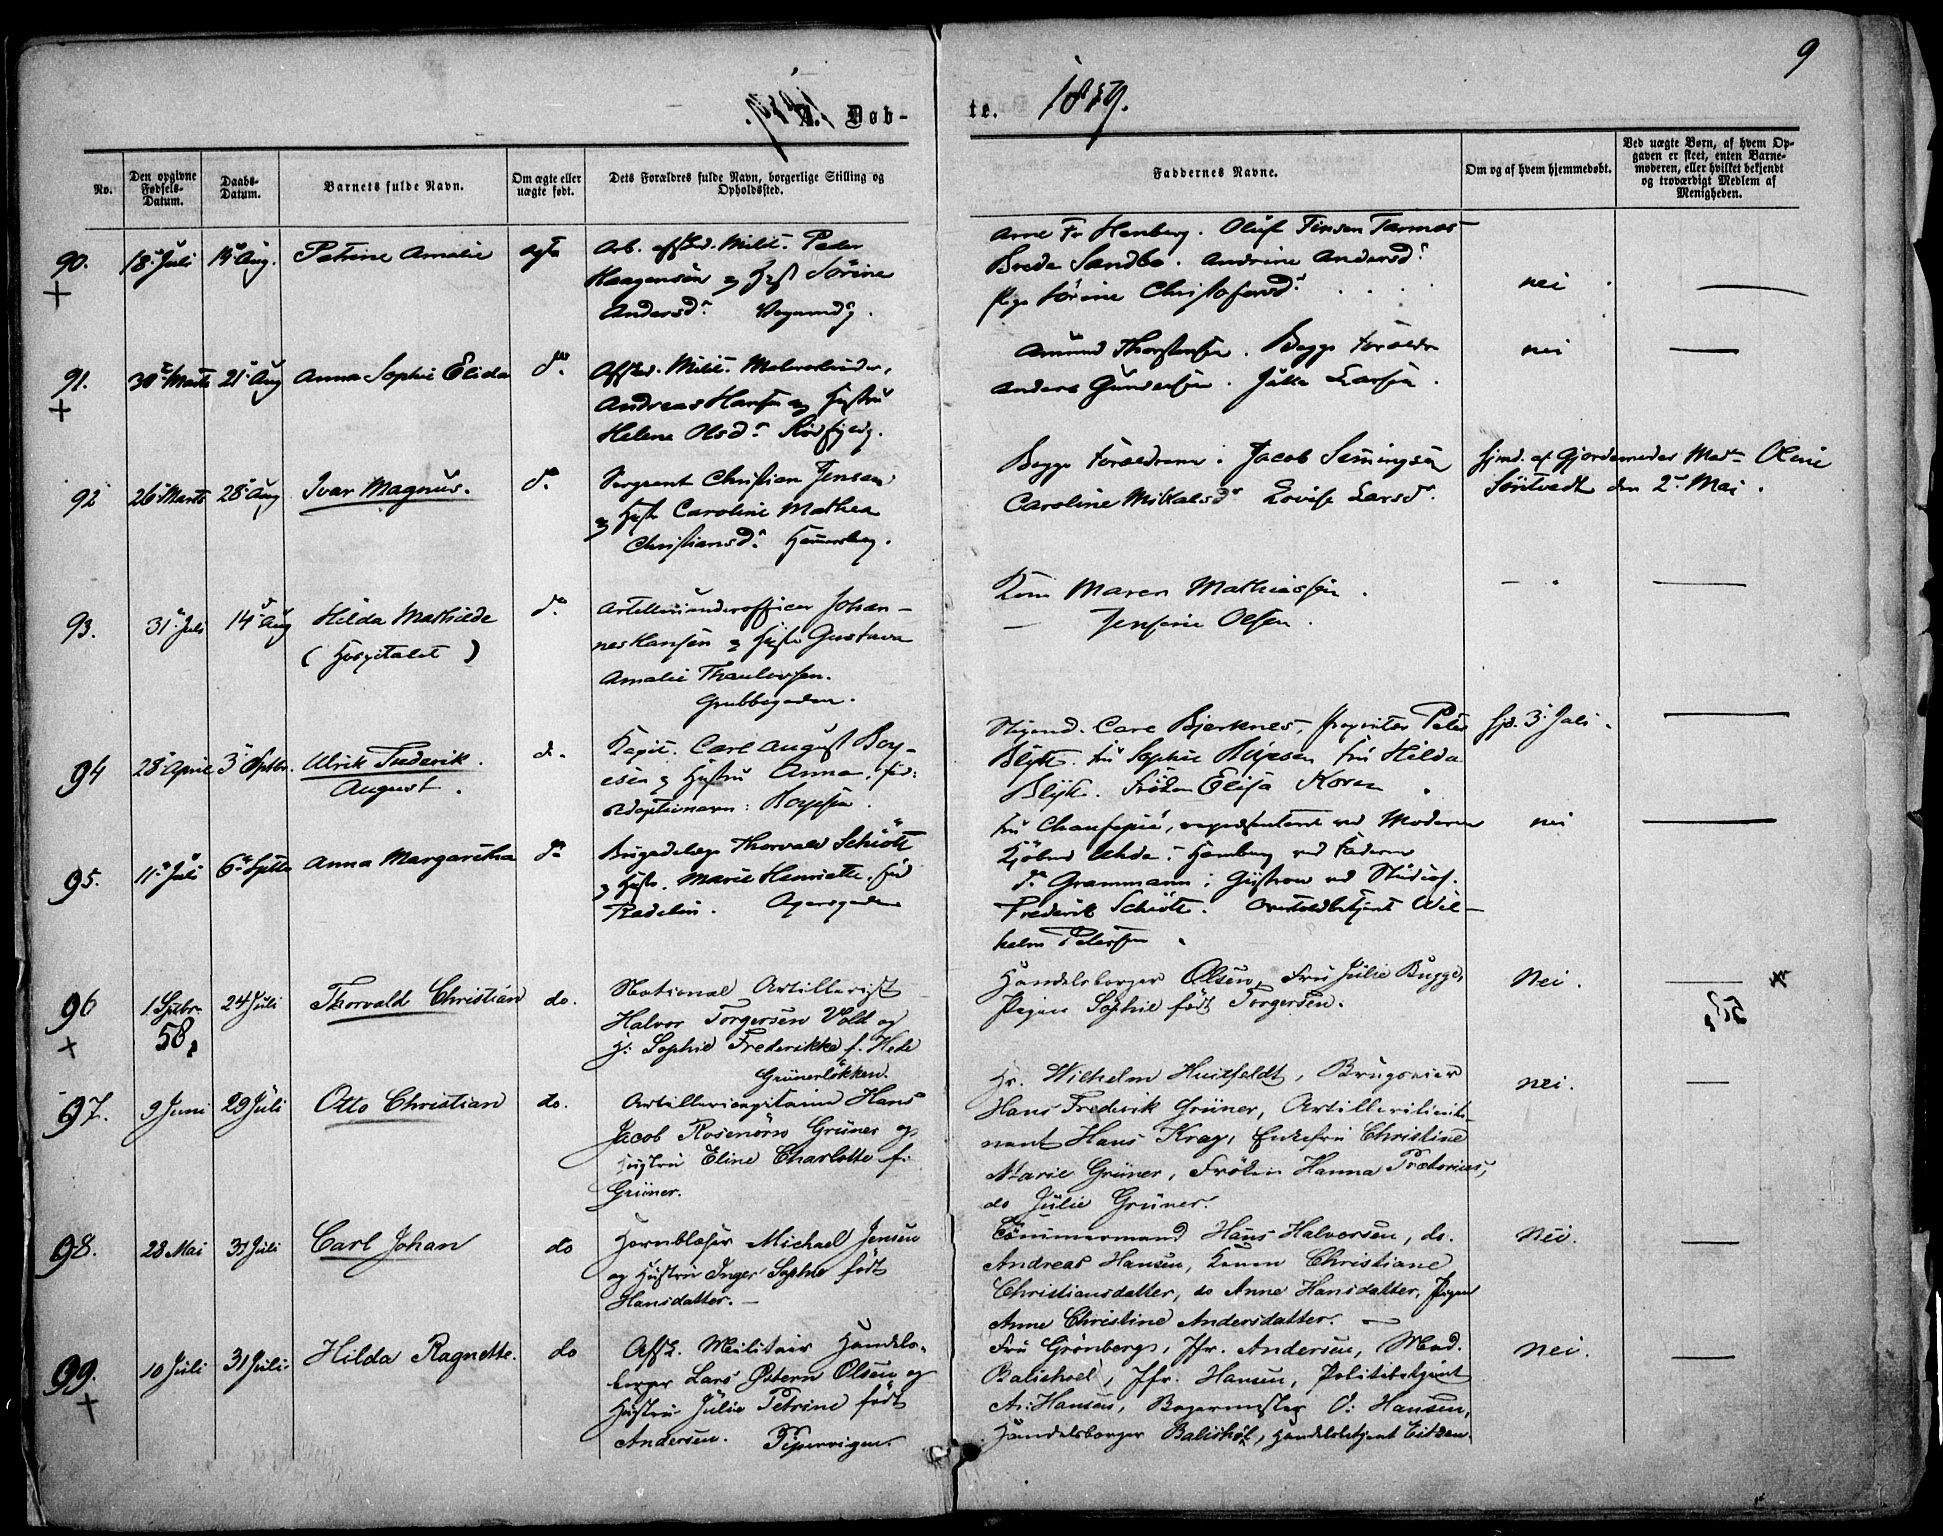 9
A. Døb-
te. 1859.
No.
Den opgivne Fødsels-Datum.
Daabs-Datum.
Barnets fulde Navn.
Om ægte eller uægte født.
Dets Forældres fulde Navn, borgerlige Stilling og Opholdssted.
Faddernes Navne.
Om og af hvem hjemmedøbt.
Ved uægte Børn, af hvem Opgaven er skeet, enten Barnemoderen, eller hvilket bekjendt og troværdigt Medlem af Menigheden.
90. 18 Juli Aug. Petrine Amalie ægte
Arb. afsked. Milit. Peder
Haagensen og Hust Sørine
Andersd.
Oluf Finsen
Sandbo. Andrine Andersd.
Pige Sørine Christofersd.
nei
91. 30 Marts 21 Aug Anna Sophie Elida do.
Afsked. Milit. Malersvend,
Andreas Hansen og Hustru
Helena Olsd.
Amund Thorstensen. Begge Forældre
Anders Gundersen. Larsen.
nei
92 26 Marts 28 Aug Ivar Magnus. do.
Sergeant Christian Jensen
og Hust Caroline Mathea
Christiansd.
Begge Forældrene. Jacob Simingsen
Caroline Mikkelsd Lovise Larsd.
hjmd. af Gjordemoder Mad. Oline
den 2 Mai.
93. 31 Juli 14 Aug Hilda Mathilde do
(Hospitalet)
Artilleriunderofficer Johan-
nes Hansen og Hustr Gustava
Amalie Thaulovsen.
Grubbegaden.
Kone Maren Mathiassen.
— Jensine Olsen.
94 28 April 3 Septbr. Ulrik Frederik do.
August.
Kapit. Carl August Boy-
esen og Hustru Anna, fød:
adoptionavn: Boyesen.
Carl Bjerknes, Proprietær Peter
Blytt. Fru Sophie Boyesen Fru Hilda
Blytt. Frøken Elisa Koren
hjd. 3 Juli.
95. 11 Juli 6 Septbr Anna Margaretha do
Brigadelæge Thorvald Schiøtt
og Hustr. Marie Henriette, fød
Agersgaden
Fru Chaufepié, repræsenteret ved Moderen
Kjøbmd Uhde i Hamburg ved Faderen
do Grammann i Güstrow ved Studios.
Frederik Schiøtt. Overtoldbetjent Wil-
helm Petersen.
nei
96 1 Septbr. 58, 24 Juli Thorvald Christian do.
National Artillerist
Halvor Torgersen Vold og
H: Sophie Frederikke f. Hede
Grünerløkken.
Handelsborger Olsen, Fru Julie Bugge,
Pigen Sophie født Torgersen.
Nei.
97. 9 Juni 29 Juli Otto Christian do.
Artillericapitain Hans
Jacob Rosenørn Grüner og
Hustru Eline Charlotte f.
Grüner.
Hr. Wilhelm Huitfeldt, Brugseier
Hans Frederik Grüner, Artillerilieute-
nant Hans Krag, Enkefru Christine
Marie Grüner, Frøken Hanna Prætorius,
do Julie Grüner.
nei.
98. 28 Mai 31 Juli Carl Johan do
Hornblæser Michael Jensen
og Hustru Inger Sophie født
Hansdatter.—
Tømmermand Hans Halvorsen, do.
Andreas Hansen, Konen Christiane
Christiansdatter, do Anne Hansdatter, Pigen
Anne Christine Andersdatter. —
Nei.
99. 10 Juli 31 Juli Hilda Ragnette. do
Afsk. Militair Handels-
borger Lars Østern Olsen og
Hustru Julie Petrine født
Andersen. Pipervigen.
Fru Grønberg, Jfr. Andersen, Mad.
Balishoel, Jfr. Hansen, Politibetjent
A: Hansen, Bagermester O: Hansen,
Handelsborger Balishøl, Handelsbetjent Eitzen.
nei.